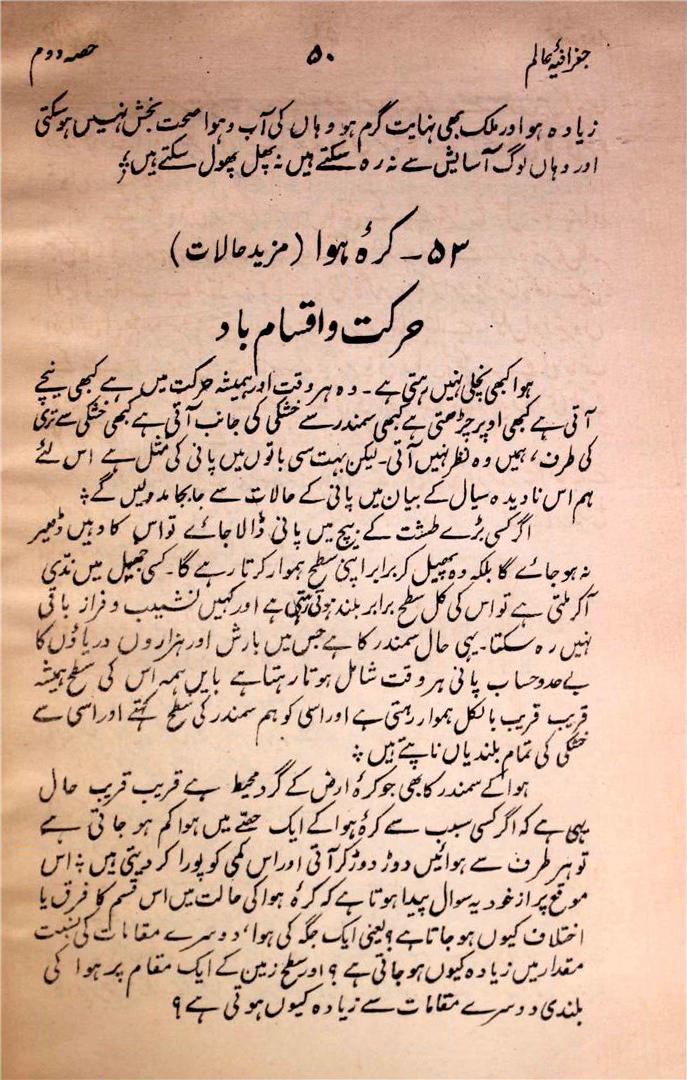 جغرافیۂ عالم ۵۰ حصہ دوم
زیادہ ہو اور ملک بھی نہایت گرم ہو وہاں کی آب و ہوا صحت بخش نہیں ہو سکتی
اور وہاں لوگ آسایش سے نہ رہ سکتے ہیں نہ پھل پھول سکتے ہیں ؞
۵۳ ۔ کرۂ ہوا (مزید حالات)
حرکت و اقسام باد
ہوا کبھی نچلی نہیں رہتی ہے ۔ وہ ہر وقت اور ہمیشہ حرکت میں ہے کبھی نیچے
آتی ہے کبھی اوپر چڑھتی ہے کبھی سمندر سے خشکی کی جانب آتی ہے کبھی خشکی سے تری
کی طرف ، ہمیں وہ نظر نہیں آتی ۔ لیکن بہت سی باتوں میں پانی کی مثل ہے اس لئے
ہم اس نادیدہ سیال کے بیان میں پانی کے حالات سے جابجا مدد لیں گے ؞
اگر کسی بڑے طشت کے بیچ میں پانی ڈالا جائے تو اس کا وہیں ڈھیر
نہ ہو جائے گا بلکہ وہ پھیل کر برابر اپنی سطح ہموار کرتا رہے گا ۔ کسی جھیل میں ندی
آکر ملتی ہے تو اس کی کل سطح برابر بلند ہوتی رہتی ہے اور کہیں نشیب و فراز باقی
نہیں رہ سکتا ۔ یہی حال سمندر کا ہے جس میں بارش اور ہزاروں دریاؤں کا
بے حد و حساب پانی ہر وقت شامل ہوتا رہتا ہے بایں ہمہ اس کی سطح ہمیشہ
قریب قریب بالکل ہموار رہتی ہے اور اسی کو ہم سمندر کی سطح کہتے اور اسی سے
خشکی کی تمام بلندیاں ناپتے ہیں ؞
ہوا کے سمندر کا بھی جو کرۂ ارض کے گرد محیط ہے قریب قریب حال
یہی ہے کہ اگر کسی سبب سے کرۂ ہوا کے ایک حصے میں ہوا کم ہو جاتی ہے
تو ہر طرف سے ہوائیں دوڑ دوڑ کر آتی اور اس کمی کو پورا کر دیتی ہیں ؞ اس
موقع پر از خود یہ سوال پیدا ہوتا ہے کہ کرۂ ہوا کی حالت میں اس قسم کا فرق یا
اختلاف کیوں ہو جاتا ہے ؟ یعنی ایک جگہ کی ہوا ، دوسرے مقامات کی نسبت
مقدار میں زیادہ کیوں ہو جاتی ہے ؟ اور سطح زمین کے ایک مقام پر ہوا کی
بلندی دوسرے مقامات سے زیادہ کیوں ہوتی ہے ؟